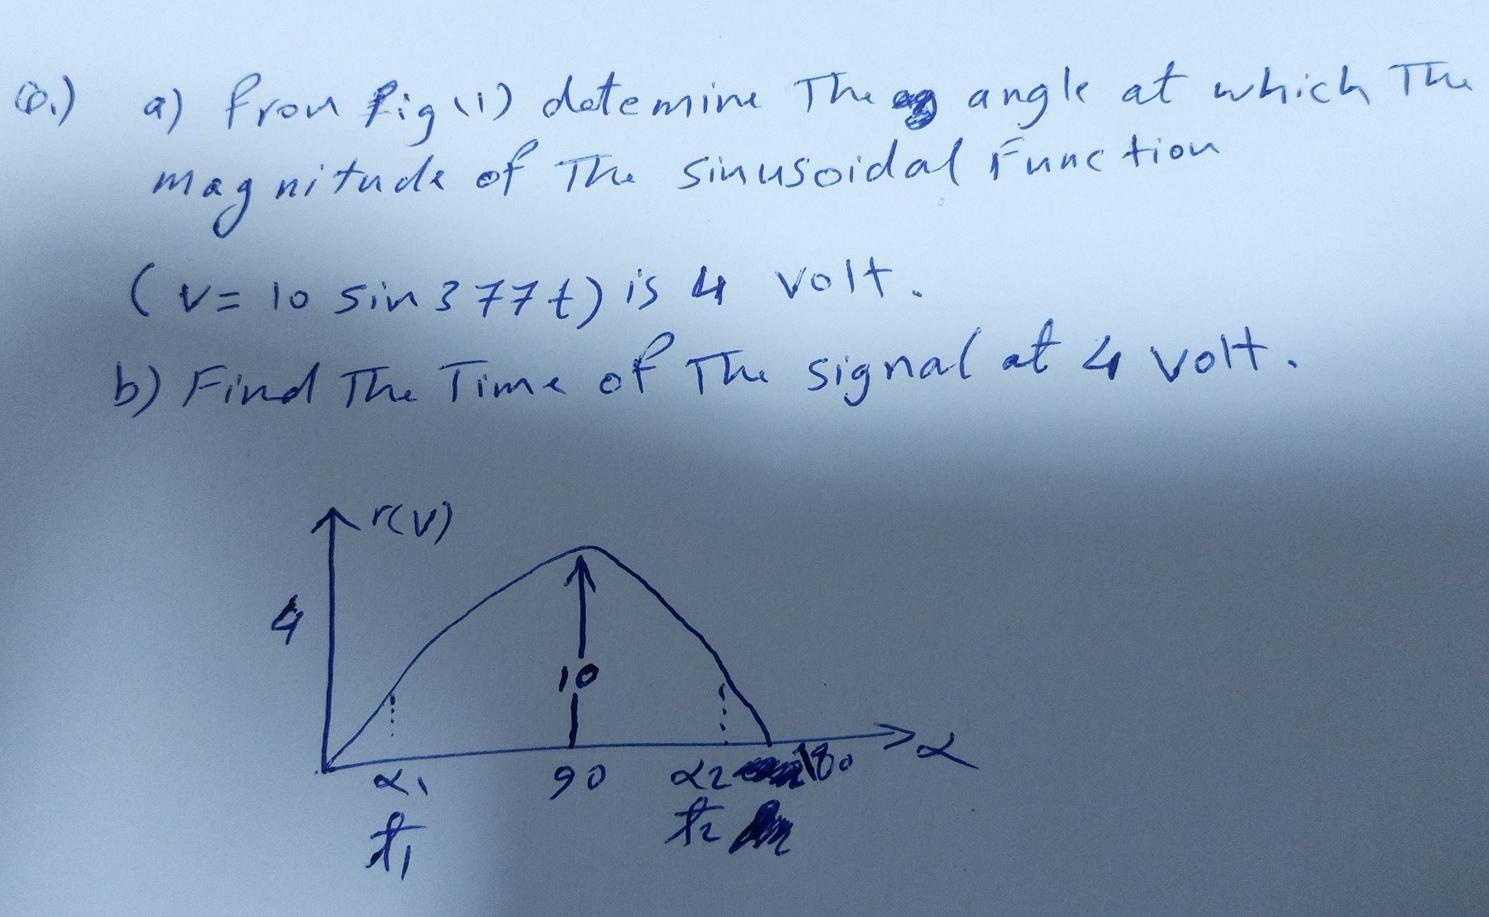 Q.) a) from fig (1) detemine The angle at which The
magnitude of The sinusoidal Function
(v= 10 sin 377t) is 4 volt.
b) Find The Time of The signal at 4 volt.
r(v)
4
10
α1 90 α2 180 α
t1 t2